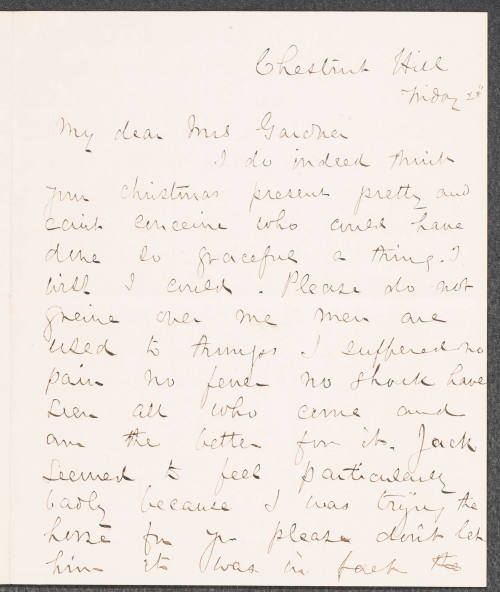 Chestnut Hill
Friday 28th
My dear Mrs Gardner
I do indeed think
your christmas present pretty and
can't conceive who could have
done so graceful a thing. I
wish I could. Please do not
grieve over me men are
used to thumps I suffered no
pain no fever no shock have
seen all who come and
am the better for it. Jack
seemed to feel particularly
badly because I was trying the
horse for you please don't let
him it was in fact the